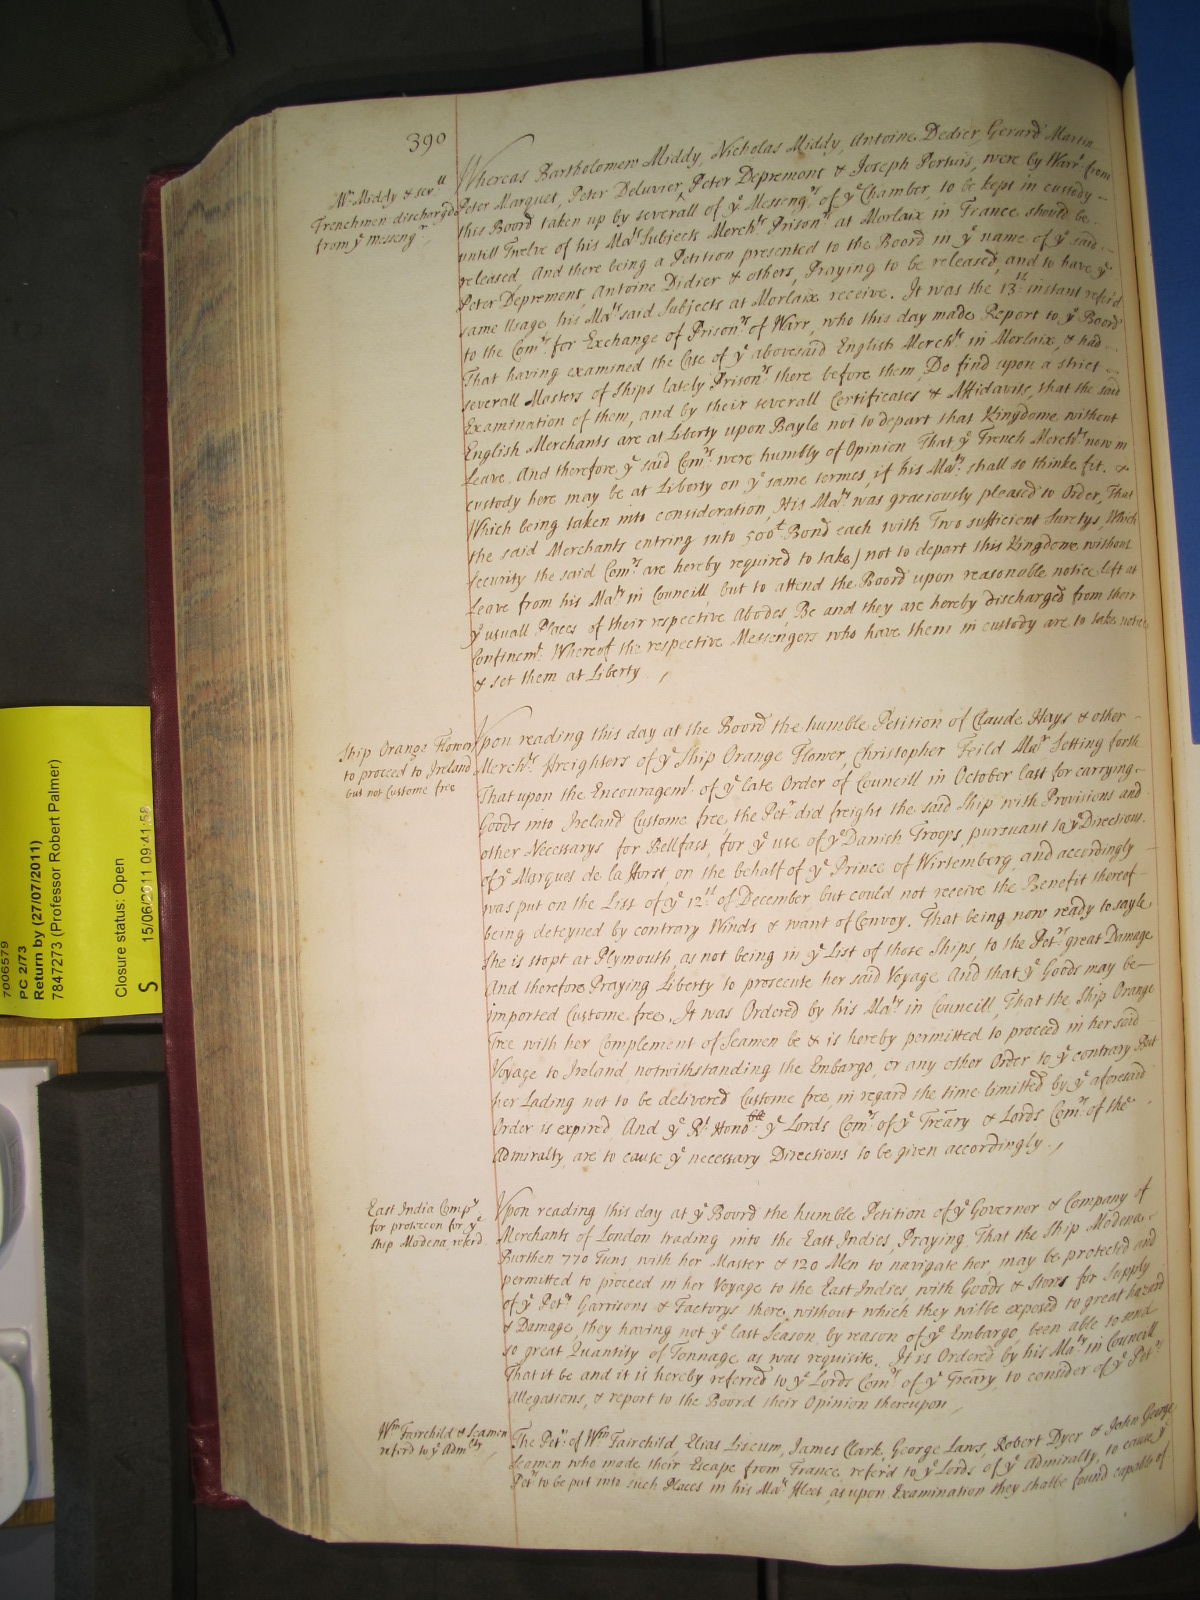 390
Mr Middy & serall
Frenchmen discharged
from ye messengrs
Whereas Bartholomew Middy, Nicholas Middy, Antoine Dedier, Gerard Martin
Peter Marquet, Peter Deluvier, Peter Depremont & Joseph Pertuis, were by Warrt from
this Board taken up by severall of ye Messengrs of ye Chamber, to be kept in custody
untill Twelve of his Mats Subjects Merchts Prisonrs at Morlaix in France should be
released, And there being a Petition presented to the Board in ye name of ye said
Peter Depremont, Antoine Didier & others, Praying to be released, and to have ye
same Usage, his Mats said Subjects at Morlaix receive. It was the 13th instant referd
to the Comrs for Exchange of Prisonrs of Warr, who this day made Report to ye Board
That having examined the Case of ye abovesaid English Merchts in Morlaix, & had
severall Masters of Ships lately Prisonrs there before them, Do find upon a strict
Examination of them, and by their severall Certificates & Affidavits, that the said
English Merchants are at Liberty upon Bayle not to depart that Kingdome without
Leave. And therefore ye said Comrs were humbly of Opinion That ye French Merchts now in
custody here may be at Liberty on ye same termes, if his Maty shall so thinke fit. &
Which being taken into consideration, His Maty was graciously pleased to Order, That
the said Merchants entring into 500£ Bond each with Two sufficient Suretys, Which
security the said Comrs are hereby required to take) not to depart this Kingdome without
Leave from his Maty in Councill, but to attend the Board upon reasonable notice left at
ye usuall Places of their respective Abodes, Be and they are hereby discharged from their
Confinemt. Whereof the respective Messengers who have them in custody are to take notice
& set them at Liberty
Ship Orange Flower
to proceed to Ireland
but not Custome free
Upon reading this day at the Board the humble Petition of Claude Hays & other
Merchts Freighters of ye Ship Orange Flower, Christopher Feild Mar Setting forth
That upon the Encouragemt of ye late Order of Councill in October last for carrying
Goods into Ireland Custome free, the Petrs did freight the said Ship with Provisions and
other Necessarys for Bellfast, for ye use of ye Danish Troops, pursuant to ye Directions
of ye Marques de la Forst, on the behalf of ye Prince of Wirtemberg, and accordingly
was put on the List of ye 12th of December but could not receive the Benefit thereof
being deteyned by contrary Winds & want of Convoy. That being now ready to sayle
she is stopt at Plymouth, as not being in ye List of those Ships, to the Petrs great Damage
And therefore Praying Liberty to prosecute her said Voyage And that ye Goods may be
imported Custome free. It was Ordered by his Maty in Councill, That the Ship Orange
Tree with her Complement of Seamen be & is hereby permitted to proceed in her said
Voyage to Ireland notwithstanding the Embargo, or any other Order to ye contrary But
her Lading not to be delivered Custome free, in regard the time limitted by ye aforesaid
Order is expired And ye Rt Honoble ye Lords Comrs of ye Treary & Lords Comrs of the
Admiralty, are to cause ye necessary Directions to be given accordingly.
East India Compy
for protecon for ye
ship Modena, referd
Upon reading this day at ye Board the humble Petition of ye Governor & Company of
Merchants of London trading into the East Indies, Praying, That the Ship Modena
Burthen 770 Tuns with her Master & 120 Men to navigate her may be protected and
permitted to proceed in her Voyage to the East Indies, with Goods & Stores for Supply
of ye Petrs Garrisons & Factorys there, without which they wilbe exposed to great hazard
& Damage, they having not ye last Season, by reason of ye Embargo, been able to send
so great Quantity of Tonnage as was requisite. It is Ordered by his Maty in Councill
That it be and it is hereby referred to ye Lords Comrs of ye Treary, to consider of ye Petrs
allegations, & report to the Board their Opinion thereupon
Wm Fairchild & Seamen
referd to ye Admlty
The Petn of Wm Fairchild, Elias Liscum, James Clark, George Laws, Robert Dyer & John George
Seamen who made their Escape from France, referd to ye Lords of ye Admiralty, to cause ye
Petrs to be put into such Places in his Mats Fleet, as upon Examination they shalbe found capable of
7006579
PC 2/73
Return by (27/07/2011)
7847273 (Professor Robert Palmer)
Closure status: Open
S 15/06/2011 09:41:58